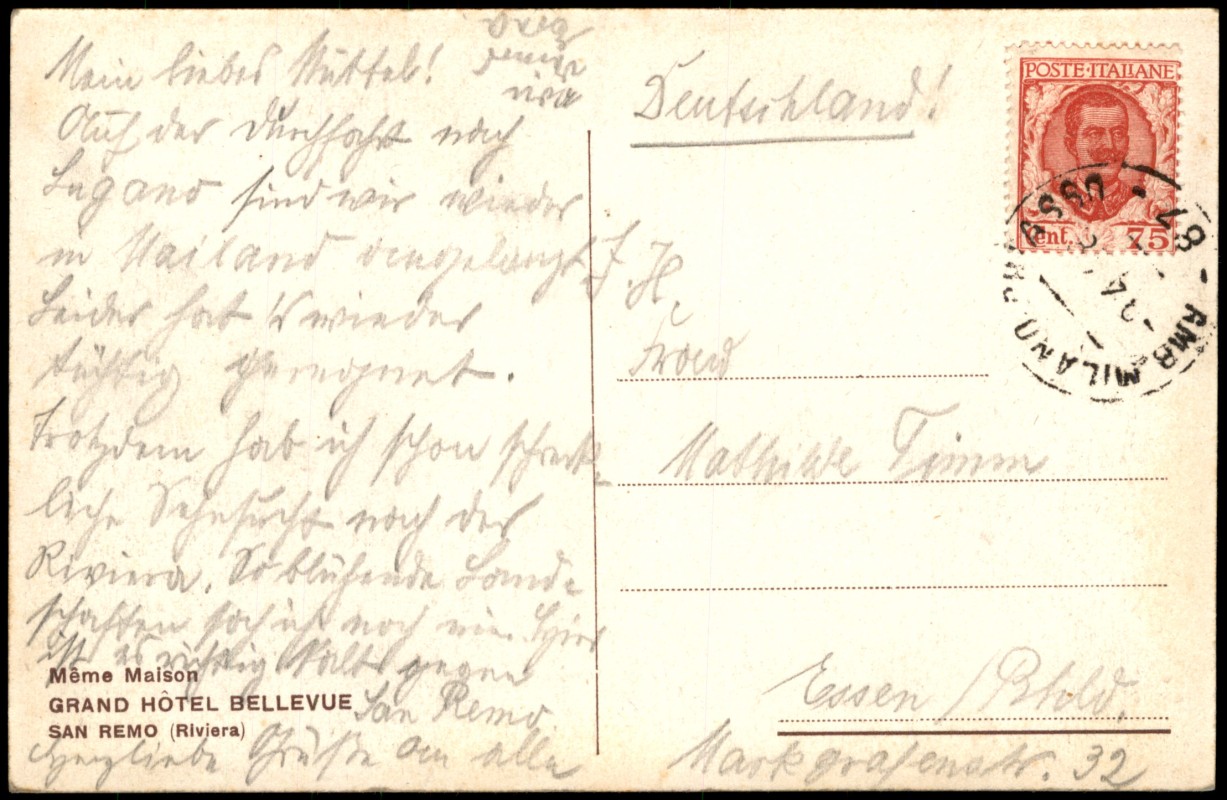 Mein liebes Muttel!
Auf der Durchfahrt nach
Lugano sind wir wieder
in Mailand angelangt.
Leider hat's wieder
tüchtig geregnet.
Trotzdem hab ich schon schreck-
liche Sehnsucht nach der
Riviera. So blühende Land-
schaften sah ich noch nie. Hier
ist es richtig kalt gegen
San Remo
Herzliche Grüße an alle
Même Maison
GRAND HÔTEL BELLEVUE
SAN REMO (Riviera)
Deutschland!
POSTE·ITALIANE
Cent. 75
MILANO
Frau
Mathilde Timm
Essen /Rhld.
Markgrafenstr. 32